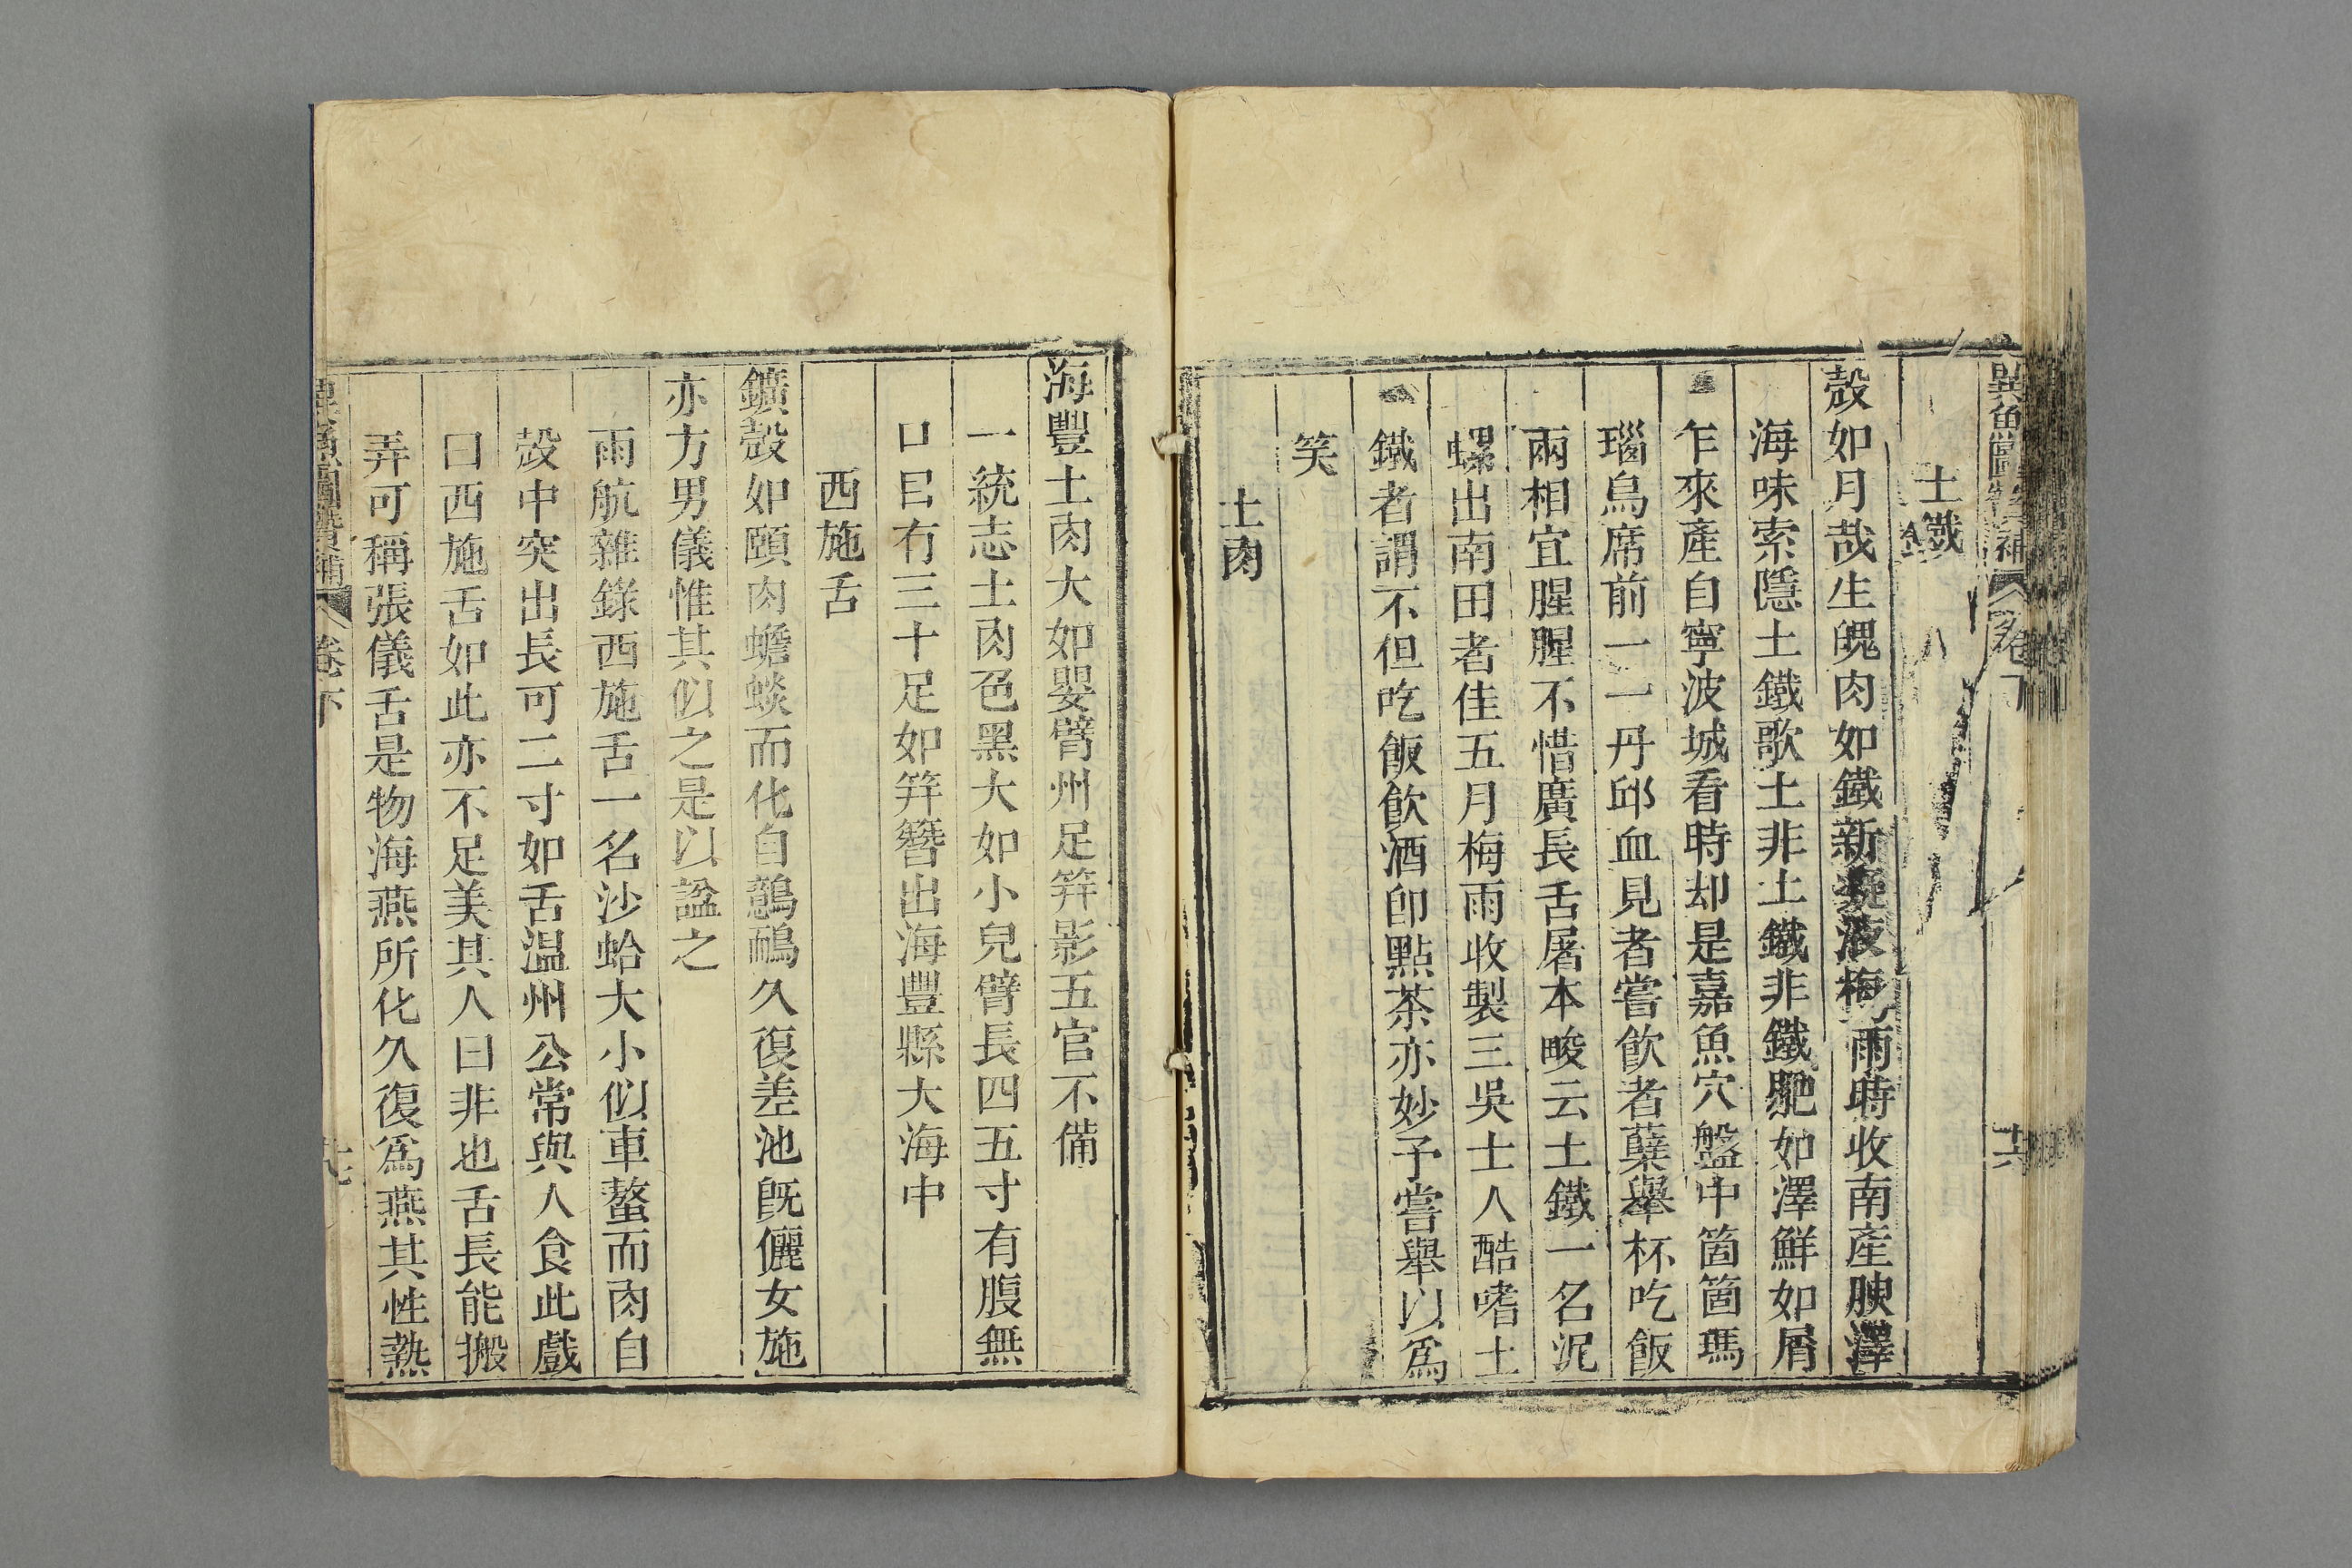 異魚圖贊補 卷下 十六
土鐵
殼如月哉生魄肉如鐵新凝液梅雨時收南產腴澤
海味索隱土鐵歌土非土鐵非鐵肥如澤鮮如屑
乍來產自寧波城看時却是嘉魚穴盤中箇箇瑪
瑙烏席前一一丹邱血見者嘗飲者蘖舉杯吃飯
兩相宜腥腥不惜廣長舌屠本畯云土鐵一名泥
螺出南田者佳五月梅雨收製三吳士人酷嗜土
鐵者謂不但吃飯飲酒卽點茶亦妙予嘗舉以爲
笑
土肉
海豐土肉大如嬰臂州足筓影五官不備
一統志土肉色黑大如小兒臂長四五寸有腹無
口目有三十足如筓簪出海豐縣大海中
西施舌
鑛殼如頤肉蟾蜍而化自鷾鴯久復差池旣儷女施
亦方男儀惟其似之是以謚之
雨航雜錄西施舌一名沙蛤大小似車螯而肉自
殼中突出長可二寸如舌温州公常與人食此戲
曰西施舌如此亦不足美其人曰非也舌長能搬
弄可稱張儀舌是物海燕所化久復爲燕其性熱
異魚圖贊補 卷下 十七